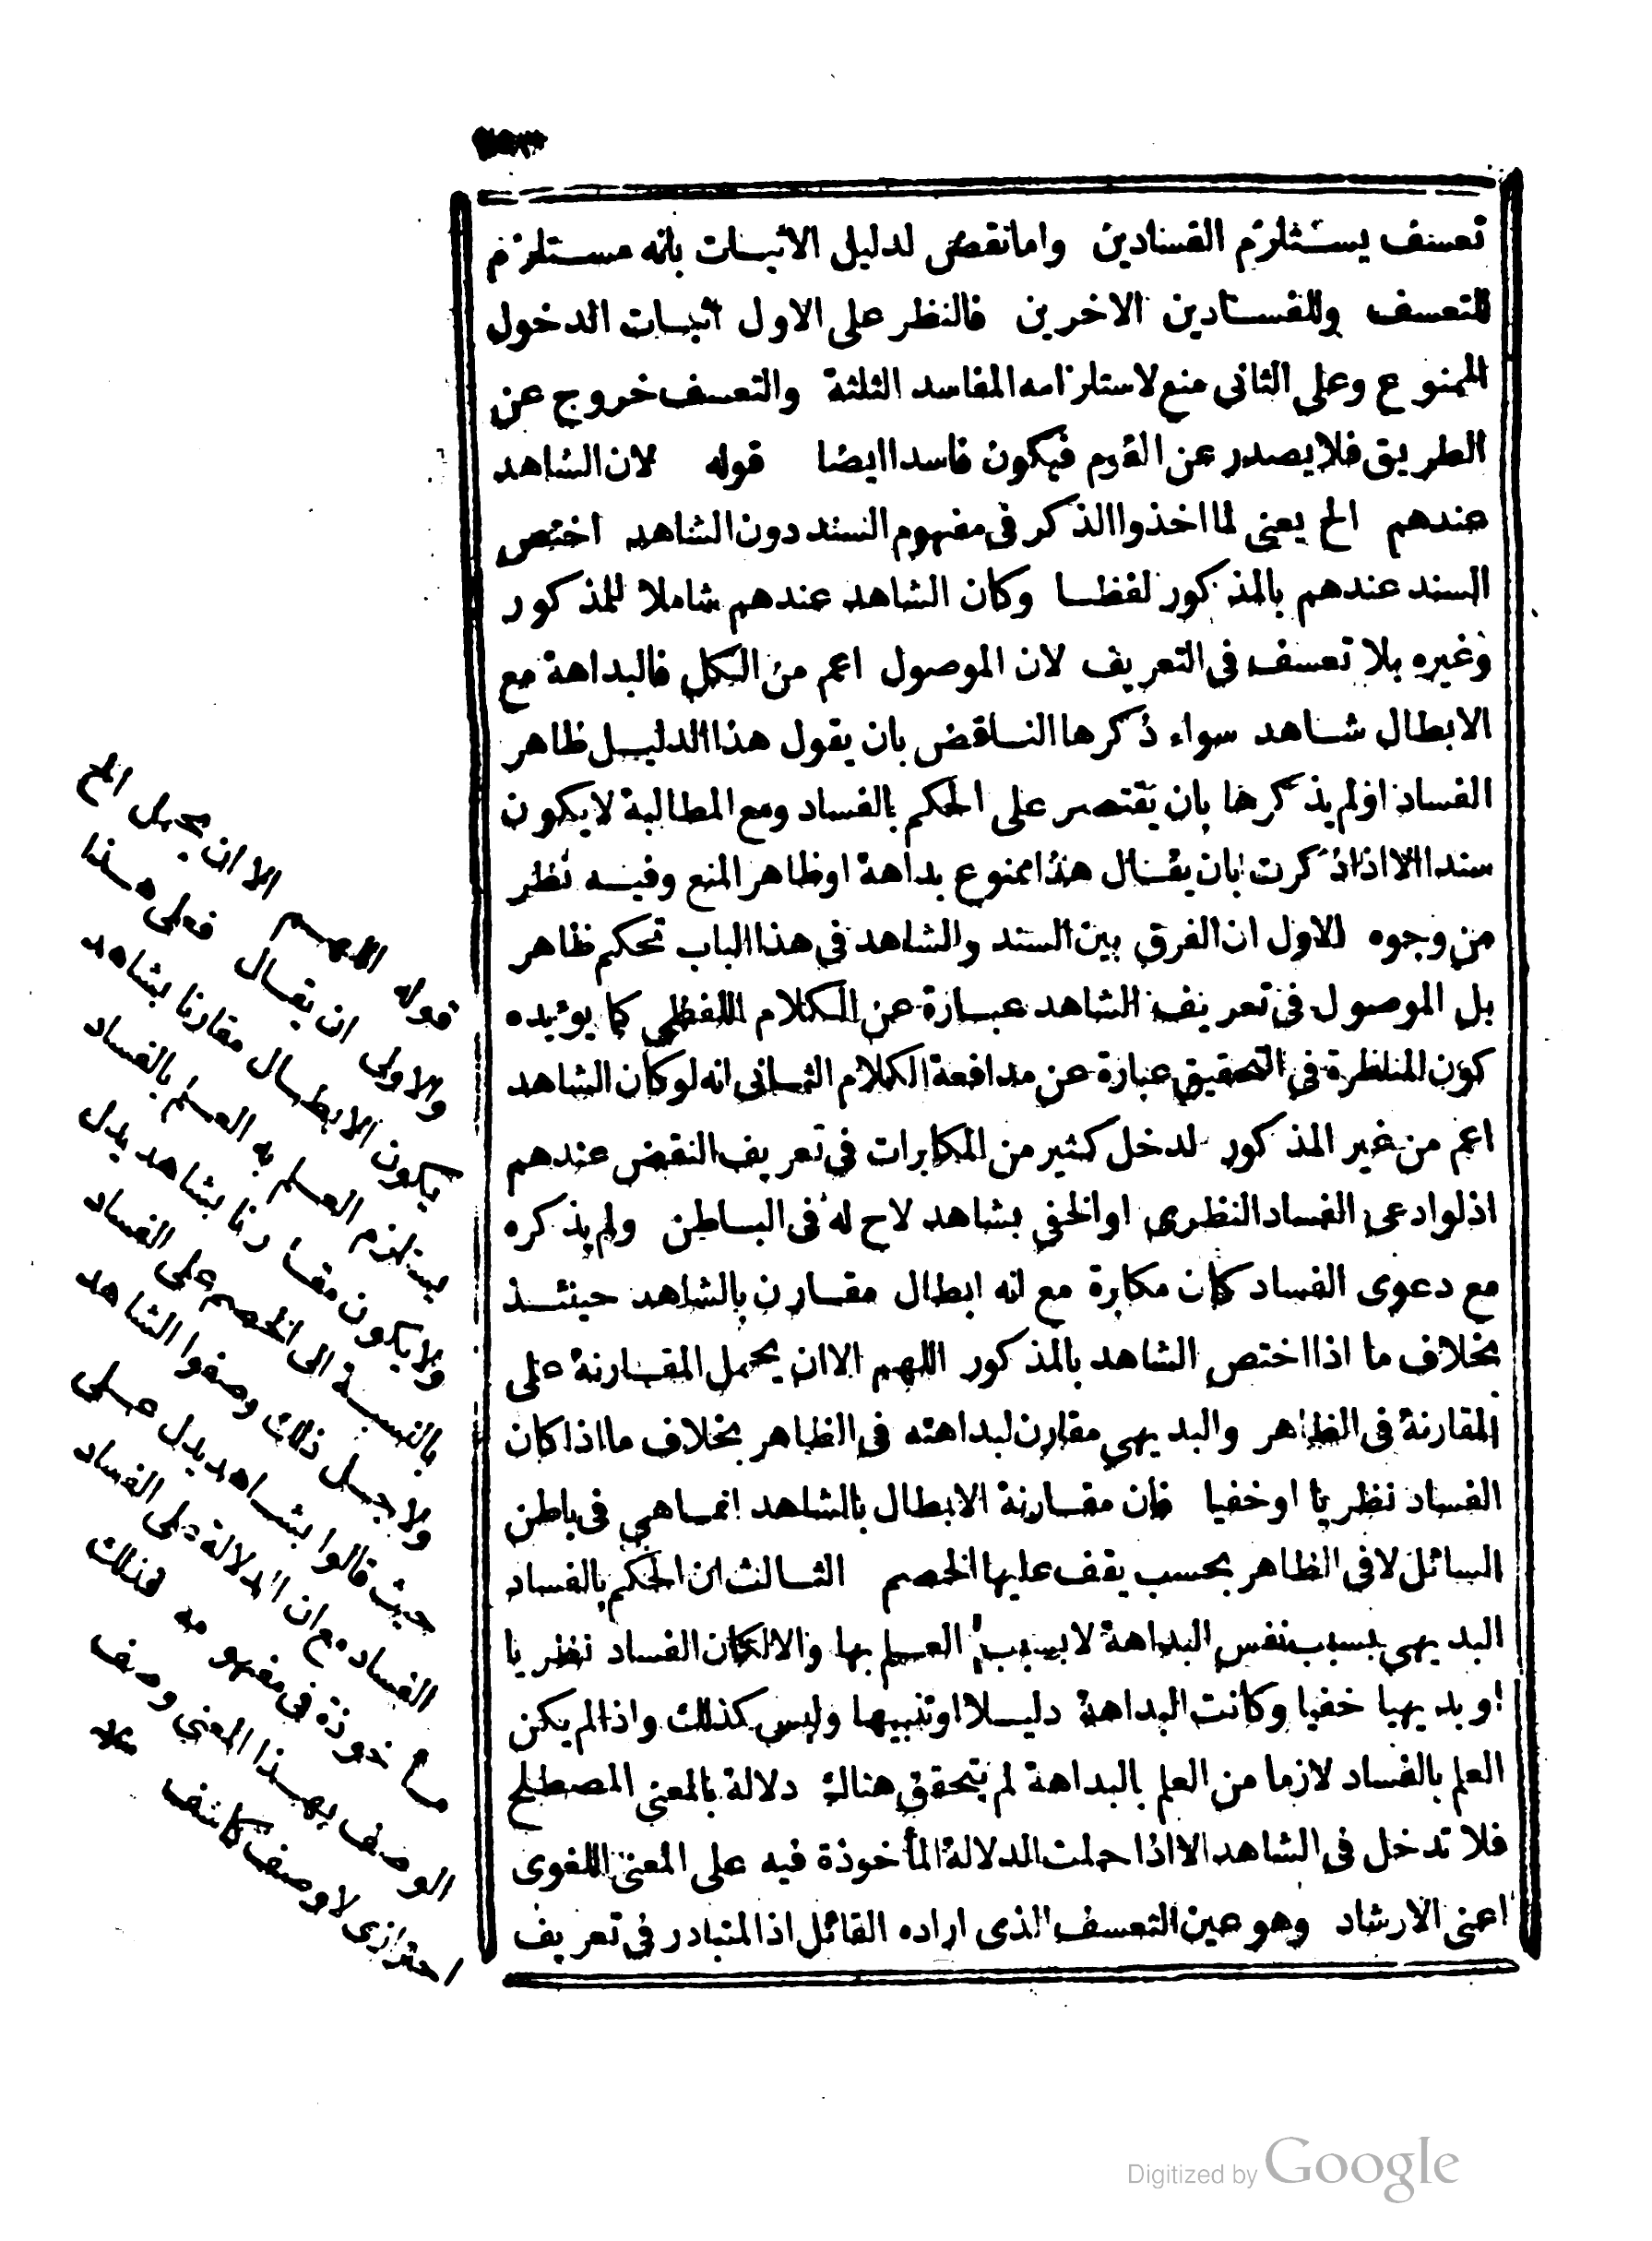 تعسف يستلزم الفسادين واما نقض لدليل الاثبات بانه مستلزم
للتعسف وللفسادين الاخرين فالنظر على الاول اثبات الدخول
الممنوع وعلى الثانى منع لاستلزامه المفاسد الثلثة والتعسف خروج عن
الطريق فلا يصدر عن القوم فيكون فاسدا ايضا قوله لان الشاهد
عندهم الخ يعنى لما اخذوا الذكر فى مفهوم السند دون الشاهد اختص
السند عندهم بالمذكور لفظا وكان الشاهد عندهم شاملا للمذكور
وغيره بلا تعسف فى التعريف لان الموصول اعم من الكل فالبداهة مع
الابطال شاهد سواء ذكرها الناقض بان يقول هذا الدليل ظاهر
الفساد او لم يذكرها بان يقتصر على الحكم بالفساد ومع المطالبة لا يكون
سندا الا اذا ذكرت بان يقال هذا ممنوع بداهة او ظاهر المنع وفيه نظر
من وجوه الاول ان الفرق بين السند والشاهد فى هذا الباب تحكم ظاهر
بل الموصول فى تعريف الشاهد عبارة عن الكلام اللفظى كما يؤيده
كون المناظرة فى التحقيق عبارة عن مدافعة الكلام الثانى انه لو كان الشاهد
اعم من غير المذكور لدخل كثير من المكابرات فى تعريف النقض عندهم
اذ لو ادعى الفساد النظرى او الخفى بشاهد لاح له فى الباطن ولم يذكره
مع دعوى الفساد كان مكابرة مع انه ابطال مقارن بالشاهد حينئذ
بخلاف ما اذا اختص الشاهد بالمذكور اللهم الا ان يحمل المقارنة على
المقارنة فى الظاهر والبديهى مقارن لبداهته فى الظاهر بخلاف ما اذا كان
الفساد نظريا او خفيا فان مقارنة الابطال بالشاهد انما هى فى باطن
السائل لا فى الظاهر بحسب يقف عليها الخصم الثالث ان الحكم بالفساد
البديهى بسبب نفس البداهة لا بسبب العلم بها والا لكان الفساد نظريا
او بديهيا خفيا وكانت البداهة دليلا او تنبيها وليس كذلك واذا لم يكن
العلم بالفساد لازما من العلم بالبداهة لم يتحقق هناك دلالة بالمعنى المصطلح
فلا تدخل فى الشاهد الا اذا حملت الدلالة المأخوذة فيه على المعنى اللغوى
اعنى الارشاد وهو عين التعسف الذى اراده القائل اذ المتبادر فى تعريف
قوله اللهم الا ان يحمل الخ
والاولى ان يقال فعلى هذا
يكون الابطال مقارنا بشاهد
يستلزم العلم به العلم بالفساد
ولا يكون مقارنا بشاهد يدل
بالنسبة الى الخصم على الفساد
ولاجل ذلك وصفوا الشاهد
حيث قالوا بشاهد يدل على
الفساد مع ان الدلالة على الفساد
مأخوذة فى مفهومه فذلك
الوصف بهذا المعنى وصف
احترازى لا وصف كاشف
Digitized by Google